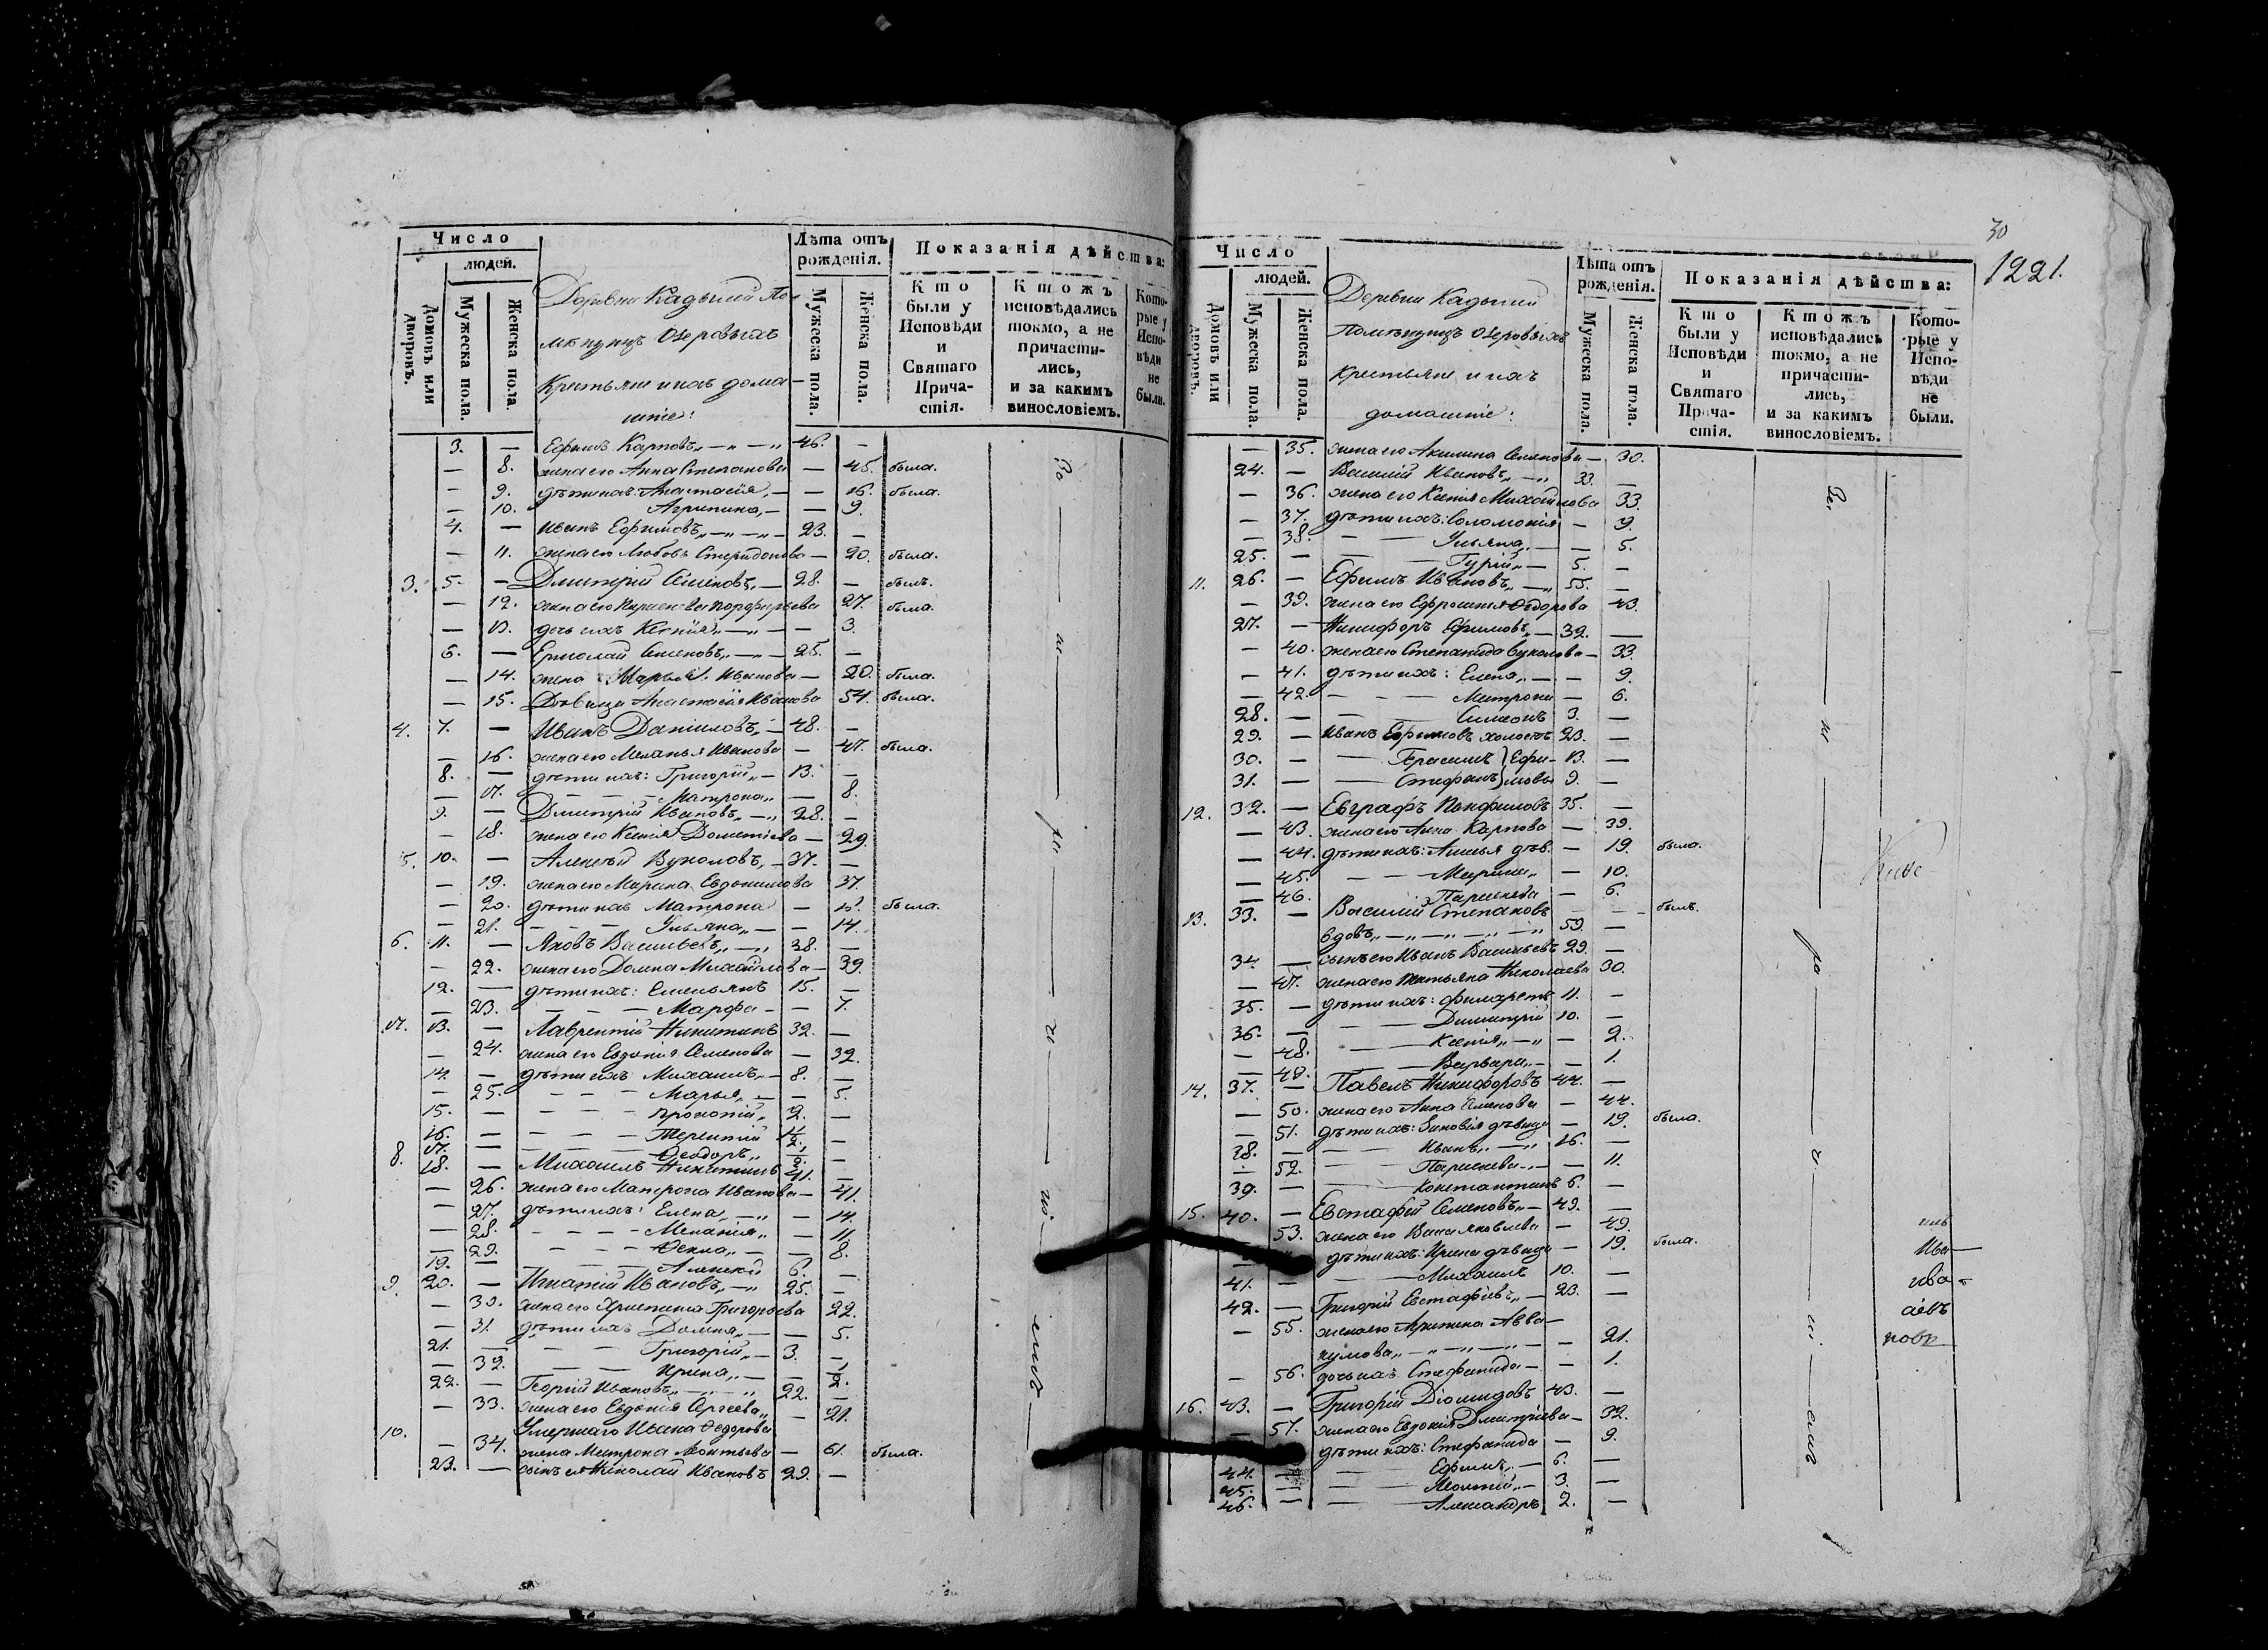 Число
людей.
Домовъ или дворовъ.
Мужеска пола.
Женска пола.
Деревни Кадыши По-
мѣщицъ Озеровыхъ
Крестьяне и ихъ дома-
шніе:
Лѣта отъ рожденія.
Мужеска пола.
Женска пола.
Показанія дѣйства:
Кто были у Исповѣди и Святаго Прича-стія.
Ктожъ исповѣдались токмо, а не причасти-лись, и за какимъ винословіемъ.
Кото-рые у Испо-вѣди не были.
3. — Ефимъ Карповъ 46. —
— 8. жена его Анна Степанова — 45. была.
— 9. дѣти ихъ: Анастасія — 16. была.
— 10. Агрипина — 9.
4. — Иванъ Ефимовъ 23. —
— 11. жена его Любовь Спиридонова — 20. была.
3. 5. — Дмитрій Семеновъ 28. — былъ.
— 12. жена его Параскева Порфирьева 27. была.
— 13. дочь ихъ Ксенія — 3.
6. — Ермолай Семеновъ 25. —
— 14. жена Ивановна — 20. была.
— 15. Дѣвица Анастасія Иванова 54. была.
4. 7. — Иванъ Даниловъ 48. —
— 16. жена его Меланья Иванова — 47. была.
8. — дѣти ихъ: Григорій 13. —
— 17. Матрона — 8.
9. — Дмитрій Ивановъ 28. —
— 18. жена его Ксенія Дометіева — 29.
5. 10. — Алексѣй Вуколовъ 37. —
— 19. жена его Марина Евдокимова 37.
— 20. дѣти ихъ Матрона — была.
— 21. Ульяна — 14.
6. 11. — Яковъ Васильевъ 38. —
— 22. жена его Домна Михайлова — 39.
12. — дѣти ихъ: Емельянъ 15. —
— 23. Марфа — 7.
7. 13. — Лаврентій Никитинъ 32. —
— 24. жена его Евдокія Семенова — 32.
14. — дѣти ихъ Михаилъ 8. —
— 25. Марья — 5.
15. — Прокопій 2. —
16. — Терентій —
17. — Ѳеодоръ —
8. 18. — Михаилъ Никитинъ 41. —
— 26. жена его Матрона Иванова — 41.
— 27. дѣти ихъ: Елена — 14.
— 28. Меланія — 11.
— 29. Ѳекла — 8.
19. — Алексѣй 6. —
9. 20. — Игнатій Ивановъ 25. —
— 30. жена его Христина Григорьева 22.
— 31. дѣти ихъ Домна — 5.
21. — Григорій 3. —
— 32. Ирина —
22. — Георгій Ивановъ 22. —
— 33. жена его Евдокія Сергеева — 21.
10. Умершаго Ивана Ѳедорова
— 34. жена Матрона Леонтьева — 61. была.
23. — сынъ ея Николай Ивановъ 29. —
30
1221.
Число
людей.
Домовъ или дворовъ.
Мужеска пола.
Женска пола.
Деревни Кадыши
Помѣщицъ Озеровыхъ
крестьяне и ихъ
домашніе:
Лѣта отъ рожденія.
Мужеска пола.
Женска пола.
Показанія дѣйства:
Кто были у Исповѣди и Святаго Прича-стія.
Ктожъ исповѣдались токмо, а не причасти-лись, и за какимъ винословіемъ.
Кото-рые у Испо-вѣди не были.
— 35. жена его Акилина Семенова — 30.
24. — Василій Ивановъ 33. —
— 36. жена его Ксенія Михайлова 33.
— 37. дѣти ихъ: Соломонія — 9.
— 38. Ульяна — 5.
25. — Гурій 5. —
11. 26. — Ефимъ Ивановъ 55. —
— 39. жена его Ефросинія Ѳедорова 43.
27. — Никифоръ Ефимовъ 32. —
— 40. жена его Степанида Вуколова — 33.
— 41. дѣти ихъ: Елена — 9.
— 42. Матрона — 6.
28. — Симеонъ 3. —
29. — Иванъ Ефимовъ холостъ 23. —
30. — Герасимъ } Ефи- 13. —
31. — Стефанъ } мовы 9. —
12. 32. — Евграфъ Панфиловъ 35. —
— 43. жена его Анна Карпова — 39.
— 44. дѣти ихъ: дѣв. — 19. была.
— 45. Марина — 10.
— 46. Параскева — 6.
13. 33. — Василій Степановъ былъ.
вдовъ 59. —
34. — сынъ его Иванъ Васильевъ 29. —
— 47. жена его Татьяна Николаева 30.
35. — дѣти ихъ: Филаретъ 11. —
36. — Димитрій 10. —
— 48. Ксенія — 2.
— 49. Варвара — 1.
14. 37. — Павелъ Никифоровъ 44. —
— 50. жена его Анна Семенова — 44.
— 51. дѣти ихъ: Зиновія дѣвица — 19. была.
38. — Иванъ 16. —
— 52. Параскева — 11.
39. — Константинъ 6. —
15. 40. — Евстафій Семеновъ 49. —
— 53. жена его Васса Яковлева — 49.
дѣти ихъ: Ирина дѣвица — 19. была.
41. — Михаилъ 10. —
42. — Григорій Евстафіевъ 23. —
— 55. жена его Агрипина Авва-
кумова — 21.
— 56. дочь ихъ Стефанида — 1.
16. 43. — Григорій Діомидовъ 43. —
— 57. жена его Евдокія Дмитріева — 32.
дѣти ихъ: Стефанида — 9.
44. — Ефимъ 6. —
45. — Леонтій 3. —
46. — Александръ 2. —